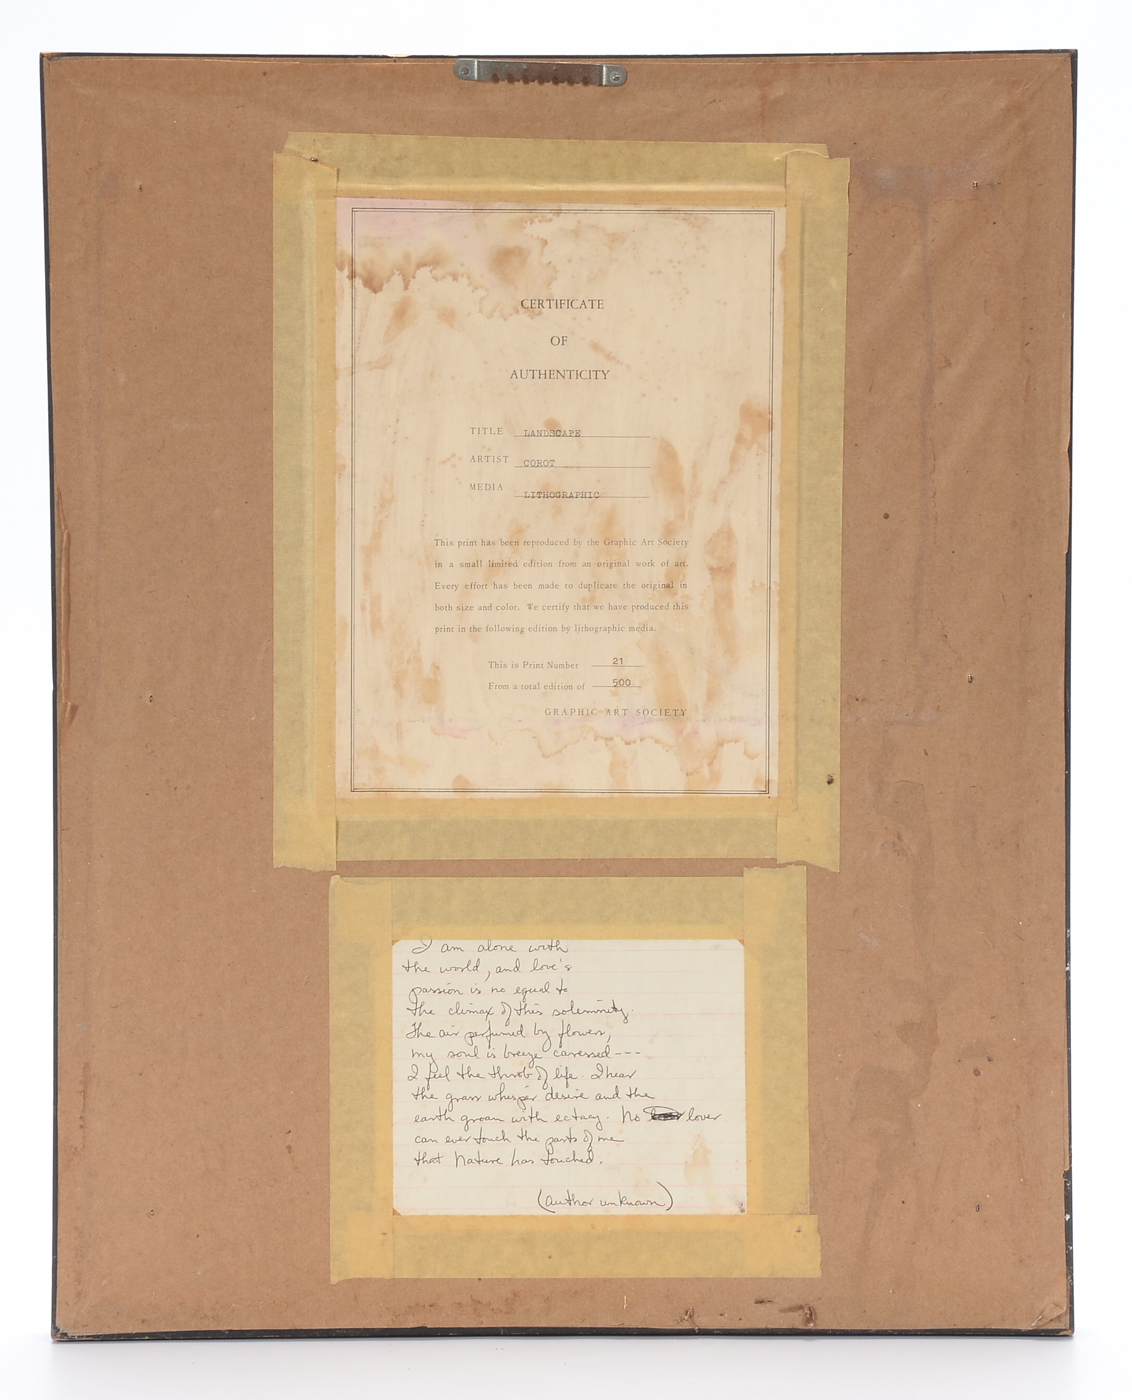 CERTIFICATE
OF
AUTHENTICITY
TITLE LANDSCAPE
ARTIST COROT
MEDIA LITHOGRAPHIC
This print has been reproduced by the Graphic Art Society
in a small limited edition from an original work of art.
Every effort has been made to duplicate the original in
both size and color. We certify that we have produced this
print in the following edition by lithographic media.
This is Print Number 21
From a total edition of 500
GRAPHIC ART SOCIETY
I am alone with
the world, and love's
passion is no equal to
the climax of this solemnity.
The air perfumed by flowers,
my soul is breeze caressed---
I feel the throb of life. I hear
the grass whisper desire and the
earth groan with ectacy. No lover
can ever touch the parts of me
that Nature has touched.
(author unknown)